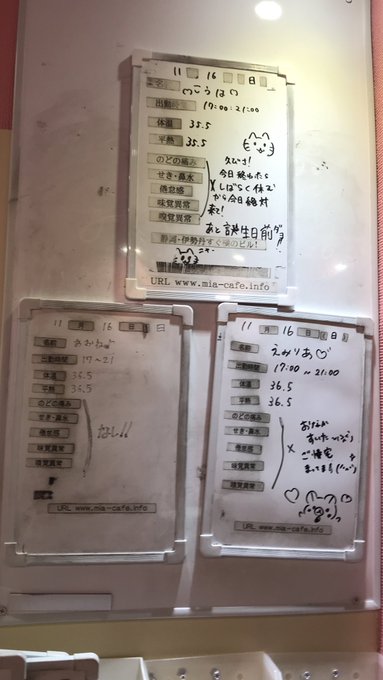 11 16 日
♡こうは♡
出勤時間 17:00:21:00
体温 35.5
平熱 35.5
のどの痛み
せき・鼻水
倦怠感
味覚異常
嗅覚異常
×
今日終わったら
しばらく休む
から今日絶対
来て!
あと誕生日前ダヨ
静岡・伊勢丹すぐ横のビル!
URL www.mia-cafe.info
11 月 16 日 日
名前
出勤時間 17~21
体温 36.5
平熱 36.5
のどの痛み
せき・鼻水
倦怠感
味覚異常
嗅覚異常
なし!!
URL www.mia-cafe.info
11 月 16 日 日
名前 えみりあ♡
出勤時間 17:00~21:00
体温 36.5
平熱 36.5
のどの痛み
せき・鼻水
倦怠感
味覚異常
嗅覚異常
×
おなか
すいた~
ご帰宅
まってます
URL www.mia-cafe.info